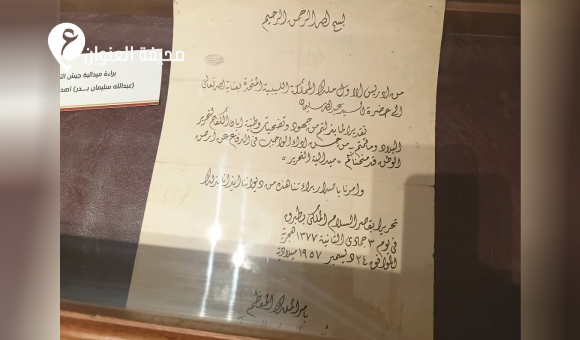 صحيفة العنوان
براءة ميدالية جيش الت
(عبدالله سليمان بـدر) اهد
بسم الله الرحمن الرحيم
من ادريس الاول ملك المملكة الليبية المتحدة بعناية الله تعالى
الى حضرة السيد عبدالله سليمان
تقديرا لما بذلتم من جهود وتضحيات وطنية ابان الكفاح لتحرير
البلاد وما قمتم به من حسن اداء الواجب في الدفاع عن ارض
الوطن قد منحناكم "ميدالية التحرير"
وامرنا باصدار براءتنا هذه من ديواننا ايذانا بذلك
تحريرا بقصر السلام الملكي بطبرق
في يوم ٣ جمادى الثانية ١٣٧٧ هجرية
الموافق ٢٤ ديسمبر ١٩٥٧ ميلادية
بامر الملك المعظم